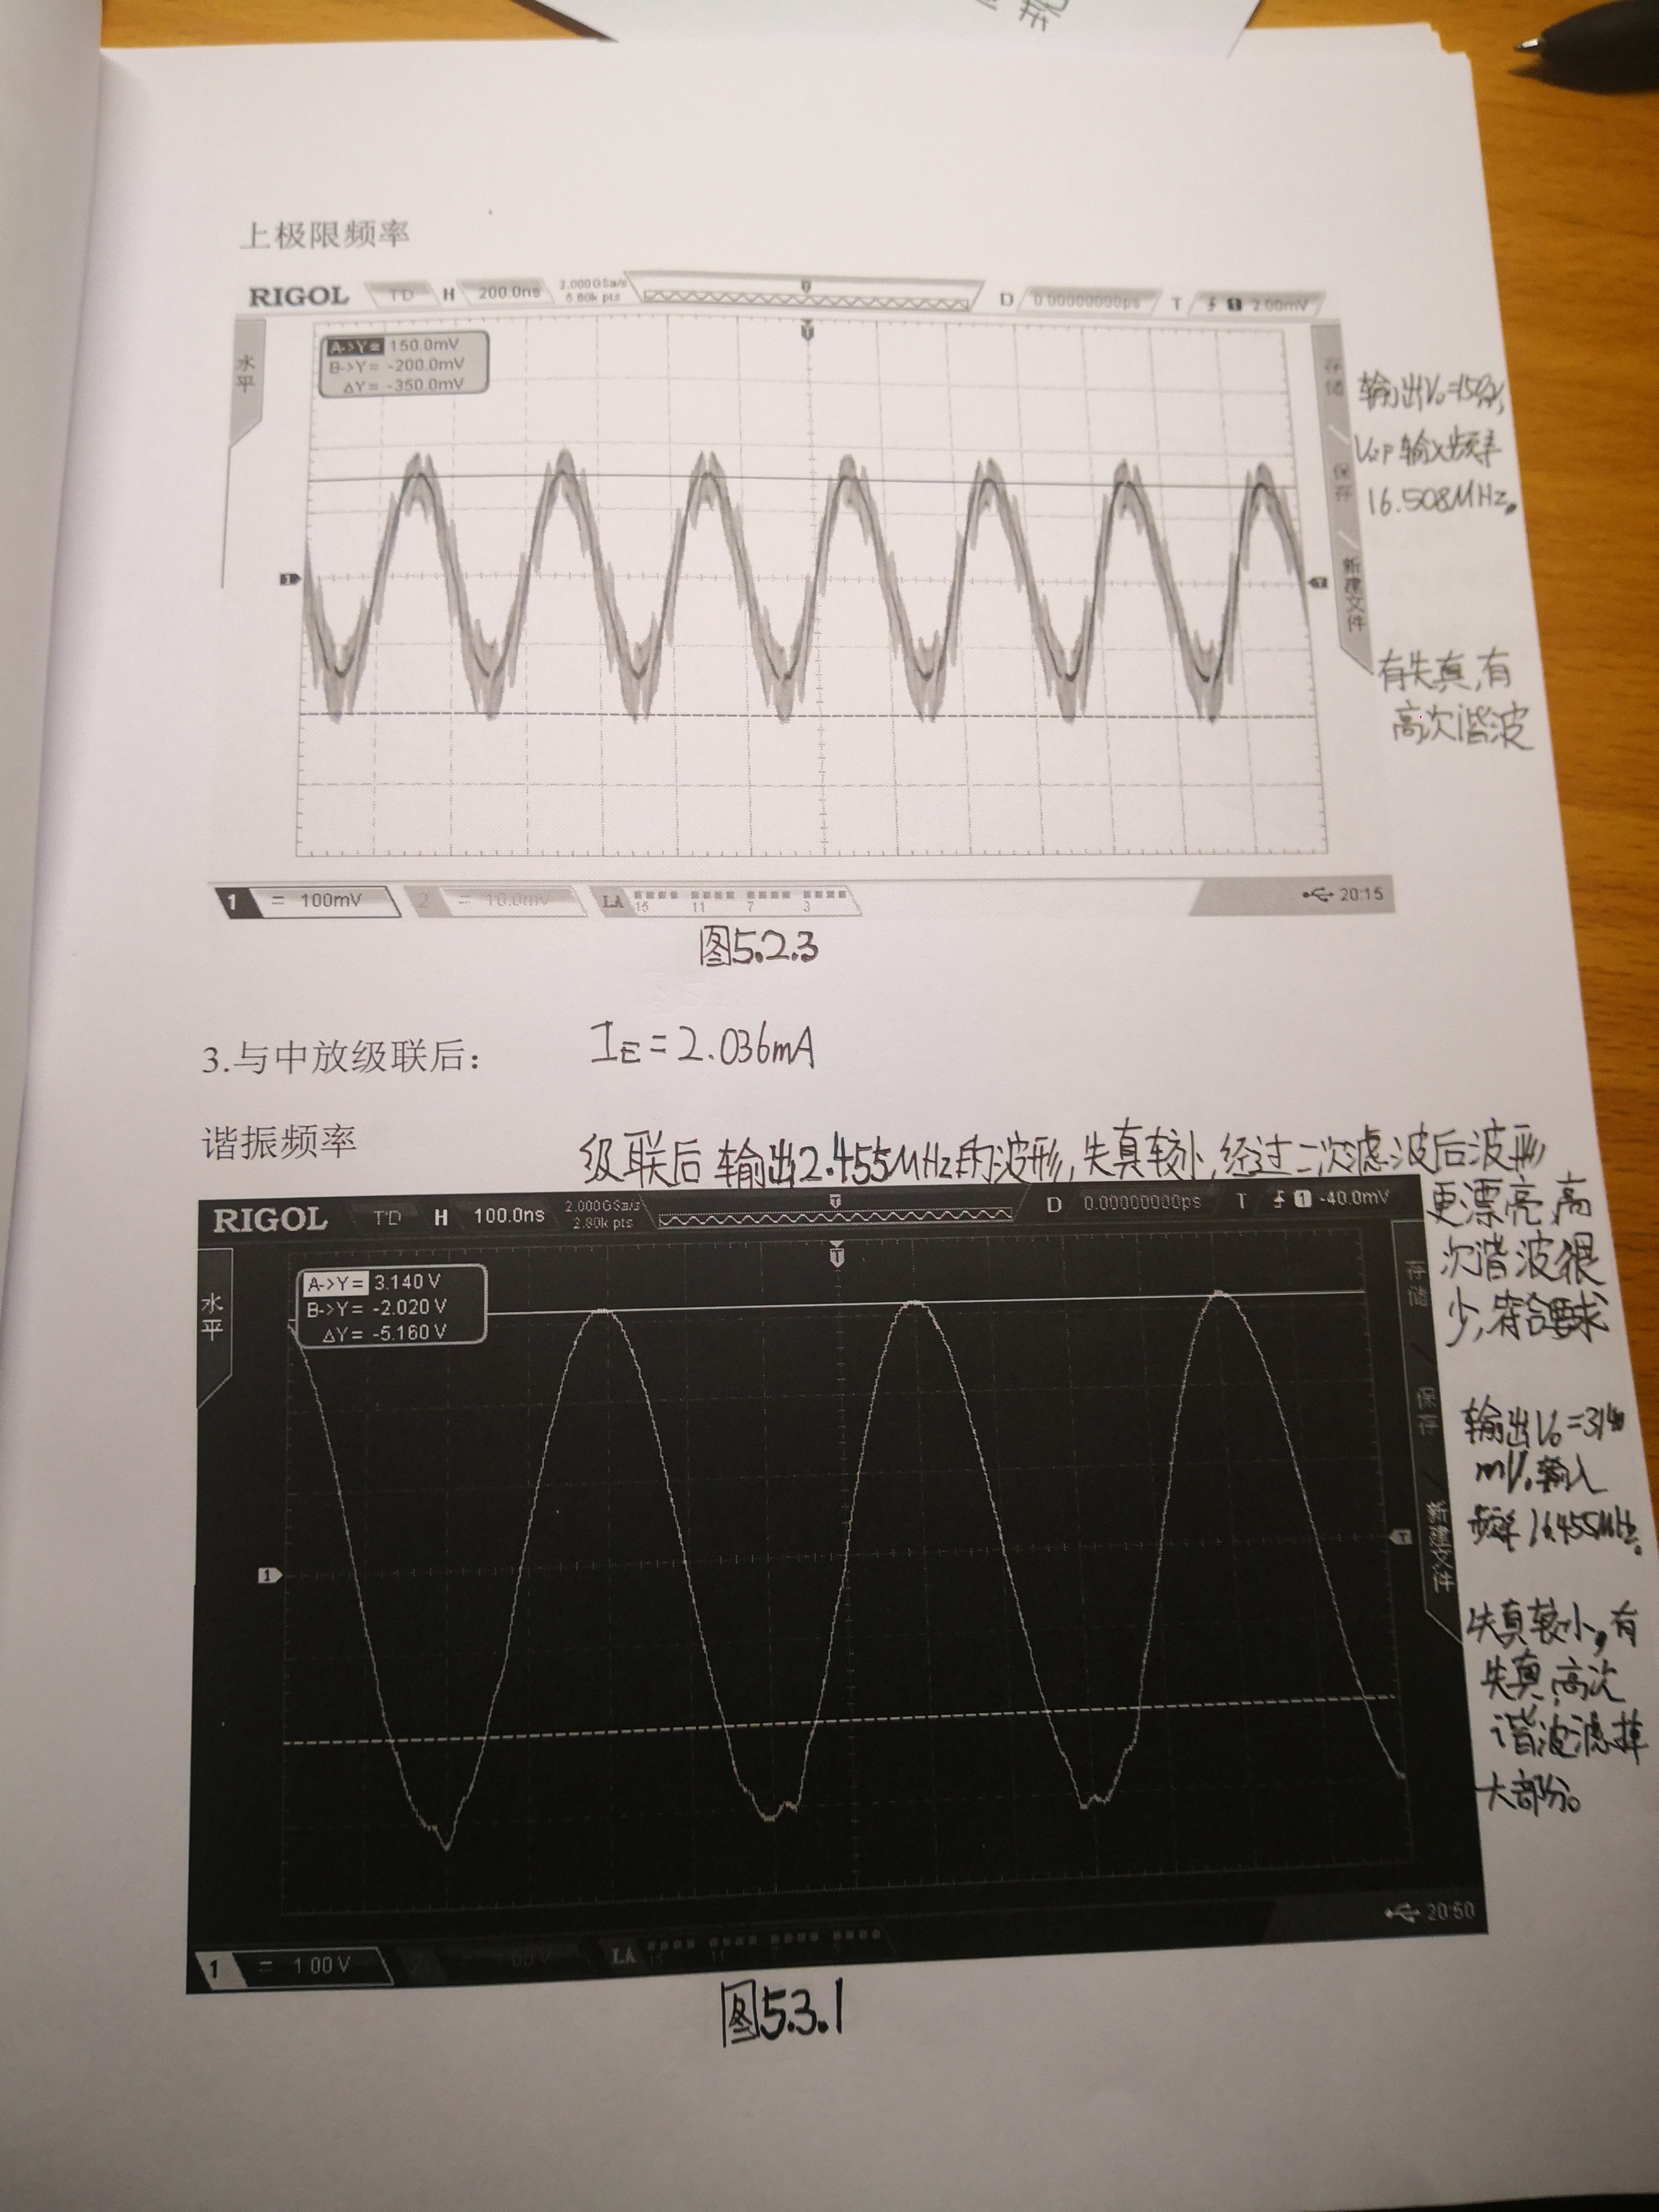 上极限频率
RIGOL T'D H 200.0ns 2.000GSa/s 5.60k pts D 0.00000000ps T 1 2.00mV
水平
A->Y= 150.0mV
B->Y= -200.0mV
△Y= -350.0mV
存储
保存
新建文件
输出V₀=150mV,
输入频率
16.508MHz。
有失真,有
高次谐波
1 = 100mV 2 = 10.0mV LA 15 11 7 3 20:15
图5.2.3
3.与中放级联后: I_E=2.036mA
谐振频率
级联后输出2.455MHz的波形,失真较小,经过二次滤波后波形
更漂亮,高
次谐波很
少,符合要求
RIGOL T'D H 100.0ns 2.000GSa/s 2.80k pts D 0.00000000ps T 1 -40.0mV
水平
A->Y= 3.140 V
B->Y= -2.020 V
△Y= -5.160 V
存储
保存
新建文件
输出V₀=3140
mV,输入
频率16.455MHz。
失真较小,有
失真,高次
谐波滤掉
大部分。
1 = 1.00 V 2 LA 15 11 20:50
图5.3.1